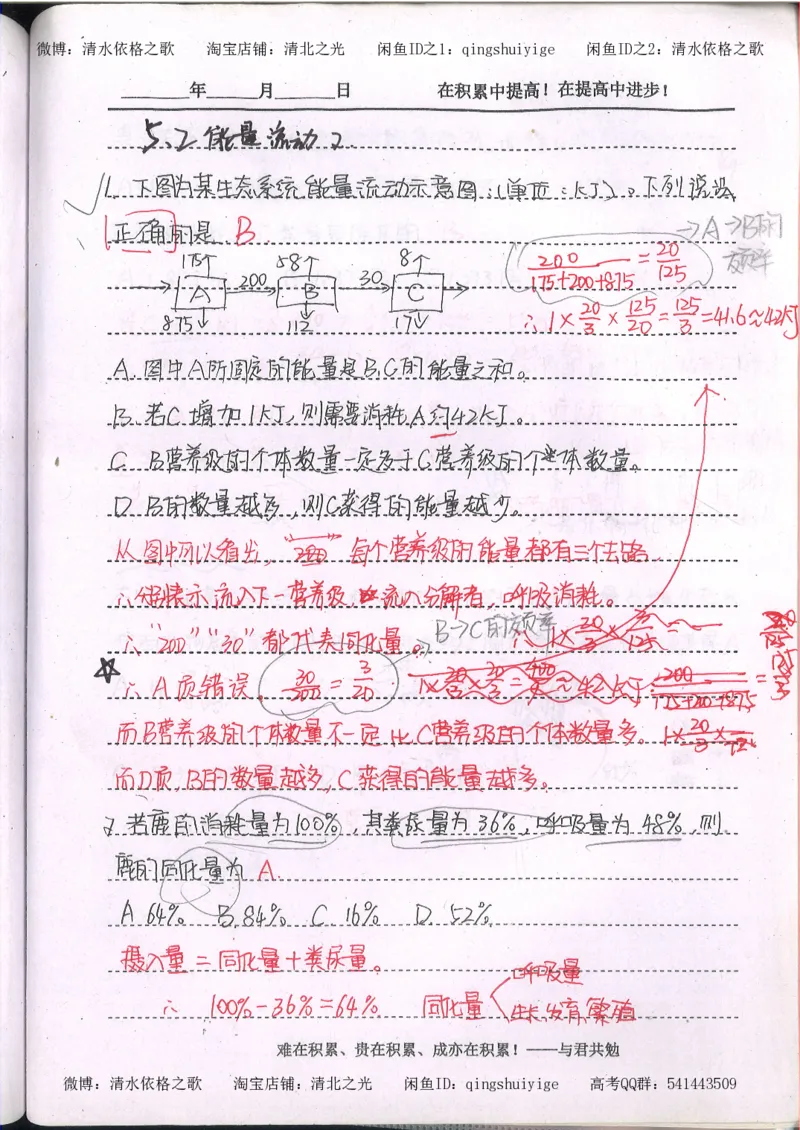 微博：清水依格之歌　淘宝店铺：清北之光　闲鱼ID之1：qingshuiyige　闲鱼ID之2：清水依格之歌
______年______月______日　在积累中提高！在提高中进步！
5.2 能量流动2
1. 下图为某生态系统能量流动示意图（单位：kJ）。下列说法
正确的是 B
⇒A→B的效率
175↑ 58↑ 8↑
→ A 200→ B 30→ C →
875↓ 112↓ 17↓
200/(175+200+875) = 20/125
∴ 1×20/3×125/20=125/3=41.6≈42kJ
A. 图中A所固定的能量是B、C的能量之和。
B. 若C增加1kJ，则需要消耗A约42kJ。
C. B营养级的个体数量一定多于C营养级的个体数量。
D. B的数量越多，则C获得的能量越少。
从图中可以看出，“200” 每个营养级的能量都有三个去路
∴分别表示流入下一营养级，流入分解者，呼吸消耗。
∴“200”“30”都代表同化量。 B→C的效率
☆∴A项错误。 30/200 = 3/20
而B营养级的个体数量不一定比C营养级的个体数量多。 1×20/3×
而D项，B的数量越多，C获得的能量越多。
2. 若鹿的消耗量为100%，其粪尿量为36%，呼吸量为48%，则
鹿的同化量为 A.
A. 64% B. 84% C. 16% D. 52%
摄入量=同化量+粪尿量。
∴ 100%-36%=64% 同化量 < 呼吸量
生长,发育,繁殖
难在积累、贵在积累、成亦在积累！——与君共勉
微博：清水依格之歌　淘宝店铺：清北之光　闲鱼ID：qingshuiyige　高考QQ群：541443509